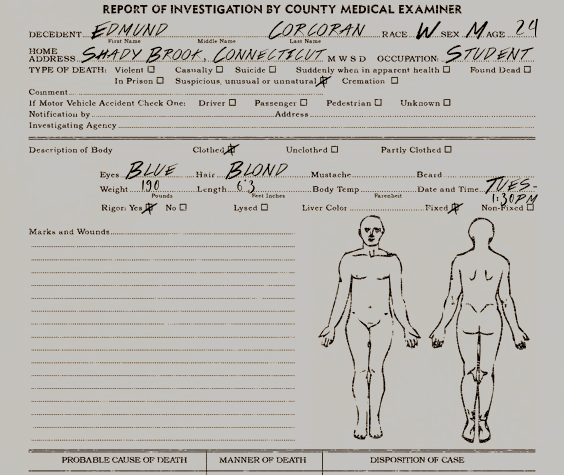 REPORT OF INVESTIGATION BY COUNTY MEDICAL EXAMINER
DECEDENT EDMUND CORCORAN RACE W SEX M AGE 24
First Name Middle Name Last Name
HOME ADDRESS SHADY BROOK, CONNECTICUT M W S D OCCUPATION: STUDENT
TYPE OF DEATH: Violent Casualty Suicide Suddenly when in apparent health Found Dead
In Prison Suspicious, unusual or unnatural Cremation
Comment
If Motor Vehicle Accident Check One: Driver Passenger Pedestrian Unknown
Notification by Address
Investigating Agency
Description of Body Clothed Unclothed Partly Clothed
Eyes BLUE Hair BLOND Mustache Beard
Weight 190 Length 6'3 Body Temp Date and Time TUES- 1:30PM
Pounds Feet Inches Farenheit
Rigor: Yes No Lysed Liver Color Fixed Non-Fixed
Marks and Wounds
PROBABLE CAUSE OF DEATH MANNER OF DEATH DISPOSITION OF CASE